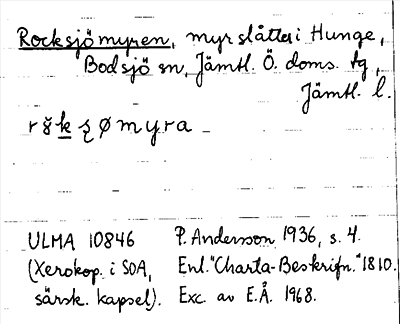 Rocksjömyren, myrslåtter i Hunge,
Bodsjö sn, Jämtl. Ö. doms. tg,
Jämtl. l.
rk̲ʂømyra
ULMA 10846 P. Andersson 1936, s. 4.
(Xerokop. i SOA, Enl. "Charta-Beskrifn." 1810.
särsk. kapsel). Exc. av E.Å. 1968.